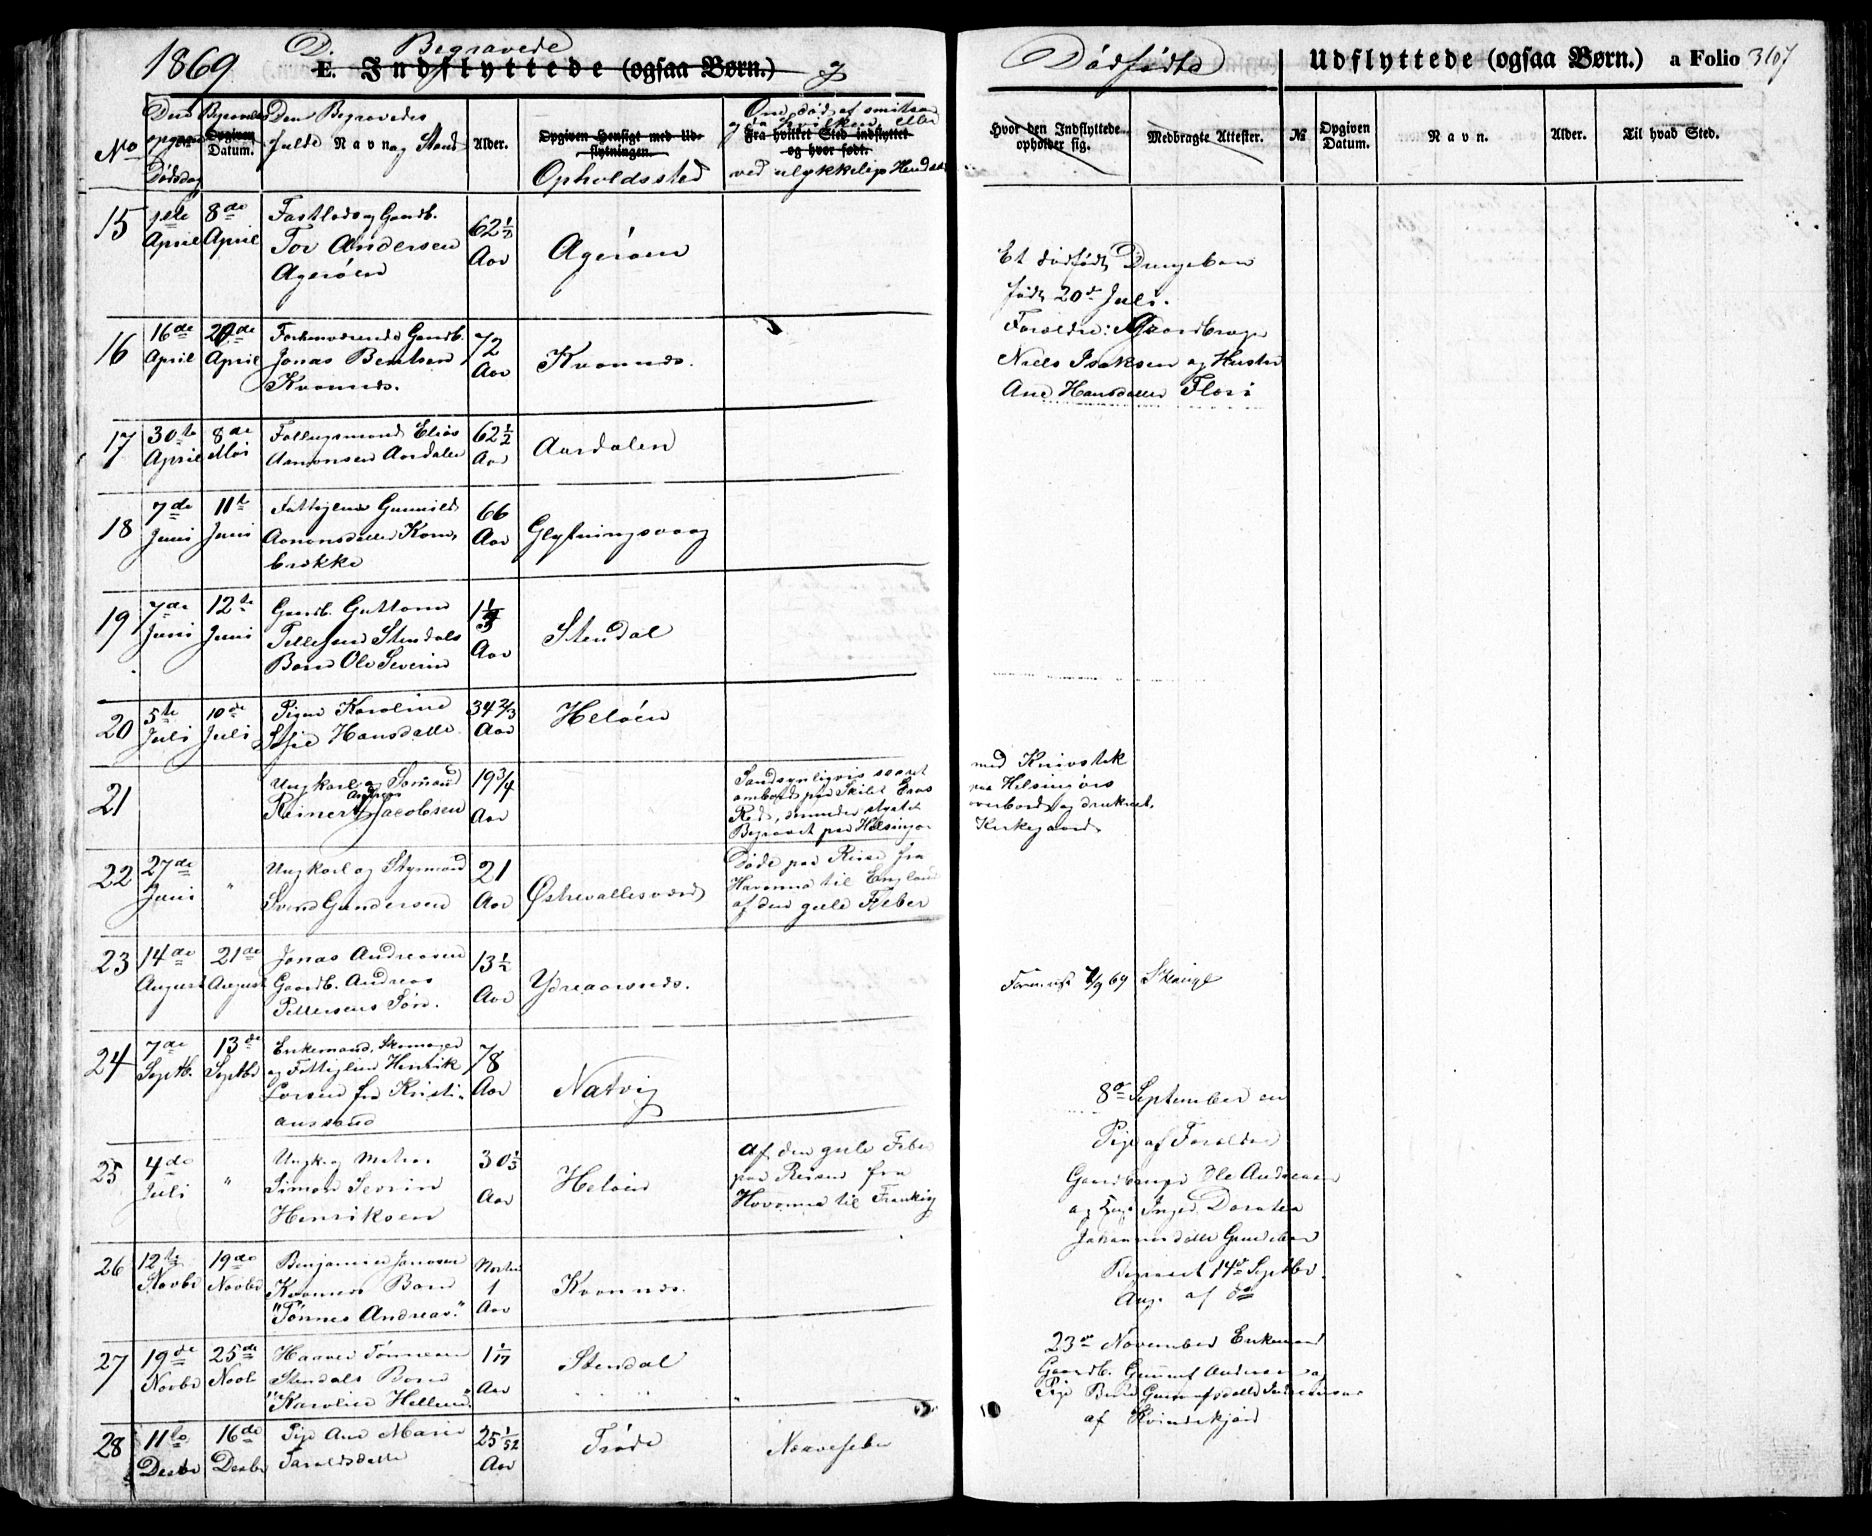 1869 D. Begravede
E. Indflyttede (ogsaa Børn.)
No
Døds dag
Begravelses
Opgiven Datum.
Den Begravedes
fulde Navn og Stand
Alder.
Opgiven Hensigt med Udflytningen.
Opholdssted
Om død af smitsom
Fra hvilket Sted indflyttet og hvor født.
ved ulykkelig Hendelse
15
1ste April
8de April
Gaardb.
Tor Andersen
Agerøen
62 1/2 Aar
Agerøen
16
16de April
20de April
Forhenværende Gaardb.
Jonas Bentsen
Kvannes.
72 Aar
Kvannes.
17
30te April
8de Mai
Fattigmand Elias
Aanonsen Aardalen
62 1/2 Aar
Aardalen
18
7de Juni
11te Juni
Gunnild
Aanonsdatter
brække
66 Aar
19
7de Juni
12te Juni
Gaardb. Guttorm
Tellefsen Stendals
Barn Ole Severin
Aar
Stendal
20
5te Juli
10de Juli
Pige Karoline
Sofie Hansdatter
34 2/3 Aar
Heløen
21
Ungkarl og Sømand
Reinert Andreas Jacobsen
19 3/4 Aar
Sandsynligvis saaret
ombord paa Skibet
Red, derunder styrtet
Begravet paa Helsingørs
22
27de Juni
"
Ungkarl og Styrmand
Svend Gundersen
21 Aar
Østrevallesværd
Døde paa Reise fra
Havanna til England
af den gule Feber
23
14de August
21de August
Jonas Andreassen
Gaardb. Andreas
Pettersens Søn.
13 1/2 Aar
Ydreaarsnes.
24
7de Septb.
13de Septbr
Enkemand, Skomager
og Fattiglem Henrik
Larsen fra Kristi-
anssand
78 Aar
Natvig
25
4de Juli
"
Ungk. og Matros
Simon Severin
Henriksen
30 1/3 Aar
Heløen
Af den gule Feber
paa Reisen fra
Havanna til Frankrig
26
12te Novbr
19de Novbr
Benjamin Jansen
Kvannes Barn
"Tønnes Andreas."
Næsten 1 Aar
Kvannes.
27
19de Novbr
25de Novb
Haaver Tønnesen
Stendals Barn
"Karoline Helene"
Aar
Stendal
28
11te Decbr
16de Decbr
Pige Ane Marie
Taraldsdatter
25 1/52 Aar
Trøde
Nervefeber
Dødfødte
Udflyttede (ogsaa Børn.) a Folio 367
Hvor den Indflyttede opholder sig.
Medbragte Attester.
№
Opgiven Datum.
Navn.
Alder.
Til hvad Sted.
Et dødfødt Drengebarn
født 20de Juli.
Forældre: Gaardbruger
Niels Isaksen og Hustru
Ane Hansdatter Fløri
med Knivstik
paa Helsingørs
overbord og druknet.
Kirkegaard.
7/9 69
8de September en
Pige af Forældre
Gaardbruger Ole Andreasen
og Inger Dorothea
Johannesdatter
Begravet 14de Septbr.
23de November Enkemand
Gaardb. Gunnuf Andersen og
Pige Gunnufsdatter
af